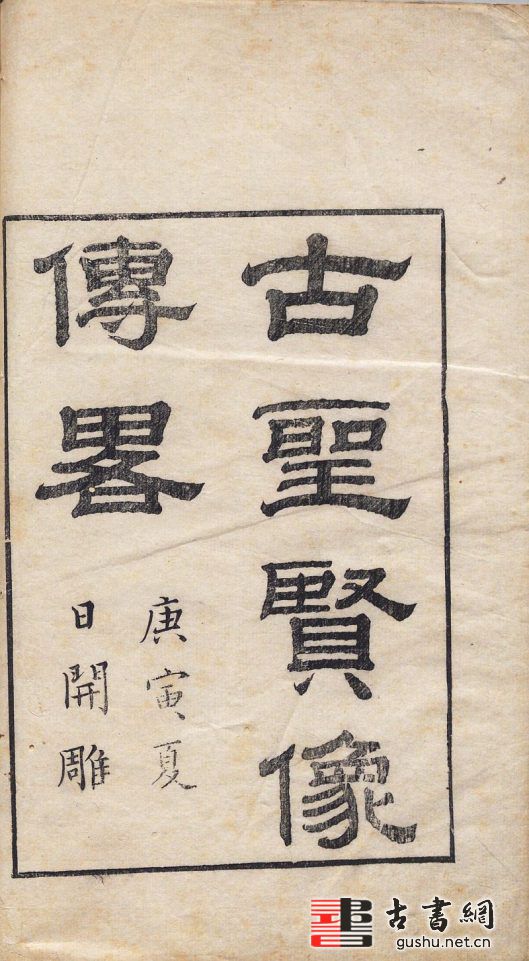 古聖賢像
傳畧
庚寅夏
日開雕
古書網
gushu.net.cn